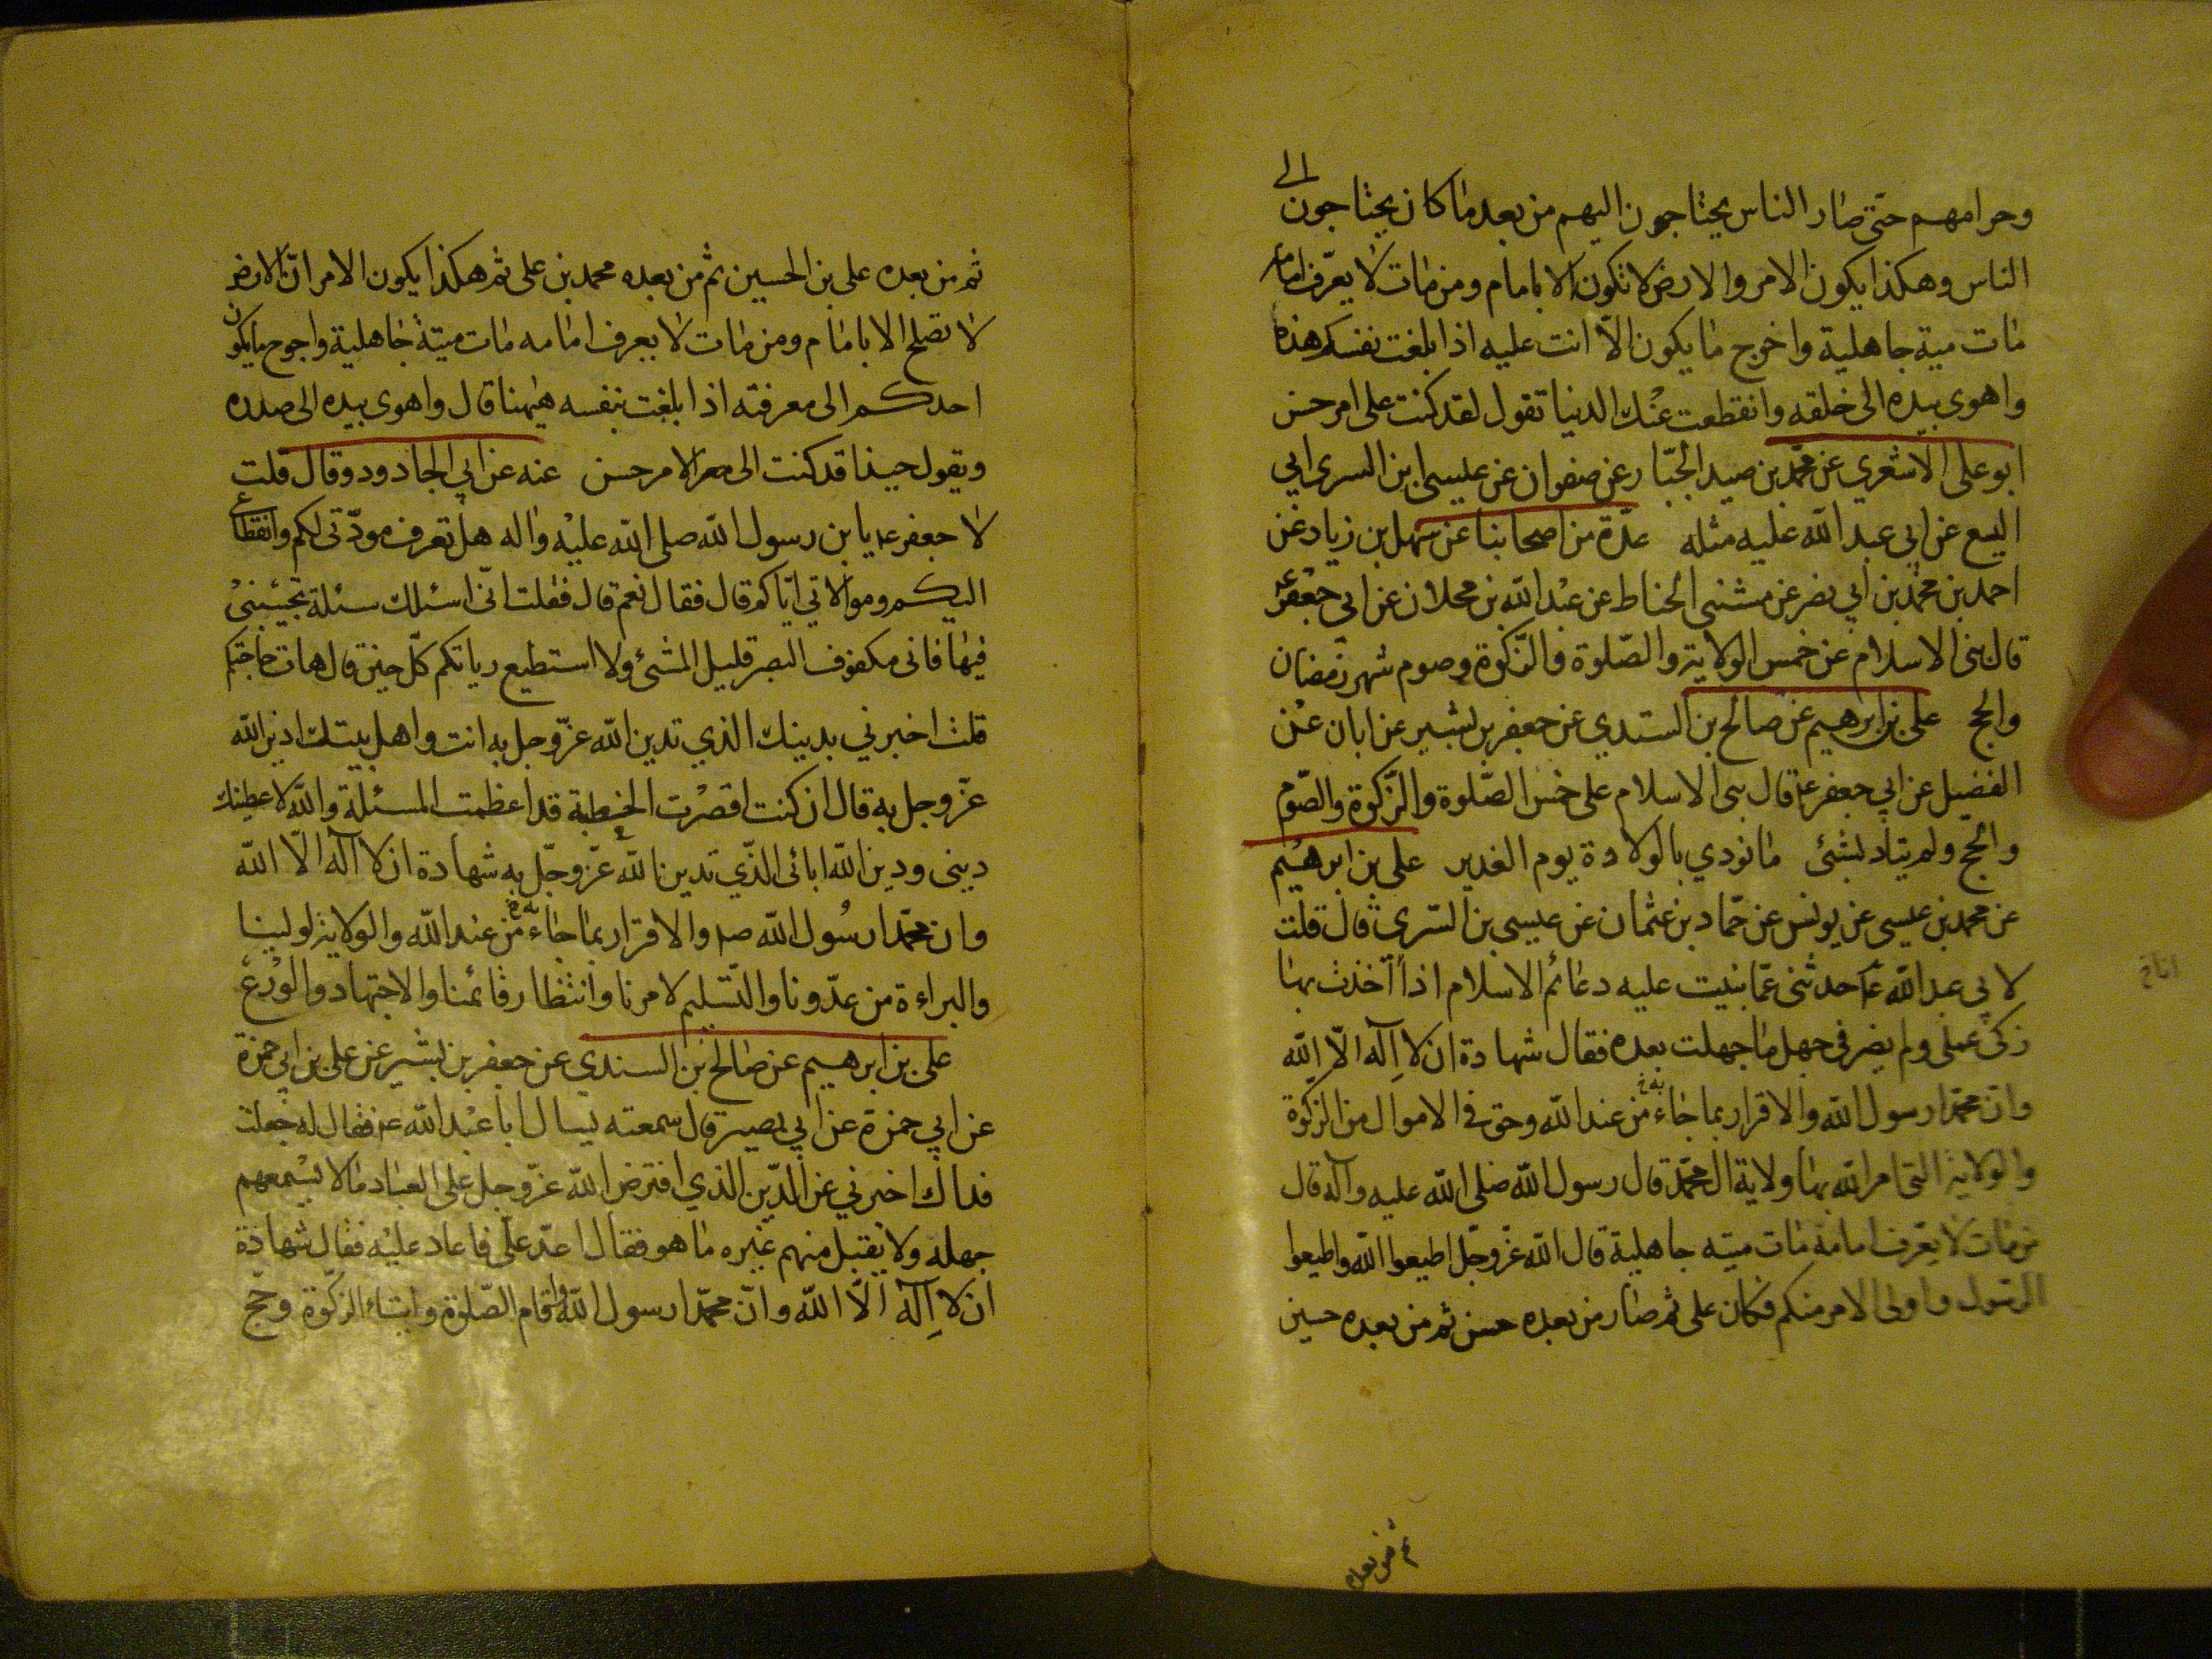 وحرامهم حتى صار الناس يحتاجون اليهم من بعد ما كان يحتاجون الى
الناس وهكذا يكون الامر والارض لا تكون الا بامام ومن مات لا يعرف امامه
مات ميتة جاهلية واخوج ما يكون الا انت عليه اذا بلغت نفسك هذه
واهوى بيده الى خلقه وانقطعت عنك الدنيا تقول لقد كنت على امر حسن
ابو على الاشعري عن محمد بن صيد الجبّار عن صفوان عن عليسى ابن السرى ابي
اليسع عن ابي عبد الله عليه مثله عدّة من اصحابنا عن سهل بن زياد عن
احمد بن محمد بن ابي نصر عن مثنى الحناط عن عبد الله بن محلان عن ابي جعفر ع
قال بنى الاسلام عن خمس الولاية والصّلوة والزّكوة وصوم شهر رمضان
والحج على بن ابرهيم عن صالح بن السندي عن جعفر بن بشير عن ابان عن
الفضيل عن ابي جعفر ع قال بنى الاسلام على خمس الصّلوة والزّكوة والصّوم
والحج ولم يناد بشئ ما نودي بالولادة يوم الغدير على بن ابرهيم
عن محمد بن عيسى عن يونس عن حمّاد بن عثمان عن عيسى بن السّرى قال قلت
لابي عبد الله ع حدثنى عمّا بنيت عليه دعائم الاسلام اذا اخذت بها
زكى عملى ولم يضرفى جهل ما جهلت بعده فقال شهادة ان لا اله الّا الله
وانّ محمّدا رسول الله والاقرار بما جاء به من عند الله وحق في الاموال من الزكوة
والولاية التى امر الله بها ولاية ال محمّد قال رسول الله صلى الله عليه وآله قال
من مات لا يعرف امامه مات ميته جاهلية قال الله عزّ وجلّ اطيعوا الله واطيعوا
الرسول واولى الامر منكم فكان على ثم صار من بعده حسن ثم من بعده حسين
ثم من بعده
ثم من بعده على بن الحسين ثم من بعده محمد بن على ثم هكذا يكون الامر انّ الارض
لا تصلح الا بامام ومن مات لا يعرف امامه مات ميتة جاهلية واجوج ما يكون
احدكم الى معرفته اذا بلغت بنفسه هيهنا قال واهوى بيده الى صدره
ويقول حينذا قد كنت الى الامر حسن عنه عن ابي الجادود وقال قلت
لا جعفر ع يابن رسول الله صلى الله عليه واله هل تعرف مودّتى لكم وانقطاعى
اليكم وموالاتي ايّاكم قال فقال نعم قال فقلت انّى اسئلك سئلة تجيبنى
فيها فانى مكفوف البصر قليل المشئ ولا استطيع رياتكم كلّ حين قال هات حاجتكم
قلت اخبرني بدينك الذي تدين الله عزّ وجل به انت واهل بيتك ادين الله
عزّ وجل به قال ان كنت اقصرت الخطبة قد اعظمت المسئلة والله لاعطينك
دينى ودين الله ابائى الذّي تدين الله عزّ وجلّ به شهادة ان لا اله الّا الله
وان محمّدا رسول الله ص والاقرار بما جاء به من عند الله والولاية لولينا
والبراءة من عدّونا والتّسليم لامرنا وانتظار قائمنا والاجتهاد والورع
على بن ابرهيم عن صالح بن السندي عن جعفر بن بشير عن على بن ابي حمزة
عن ابي حمزة عن ابي بصير قال سمعته يسال ابا عبد الله ع فقال له جعلت
فداك اخبرني عن الدّين الذي افترض الله عزّ وجل على العباد مالا يسمعهم
جهله ولا يقبل منهم غيره ما هو فقال اعدّ علىّ فاعاد عليه فقال شهادة
ان لا اله الّا الله وانّ محمّدا رسول الله واقام الصّلوة وايتاء الزّكوة وحجّ